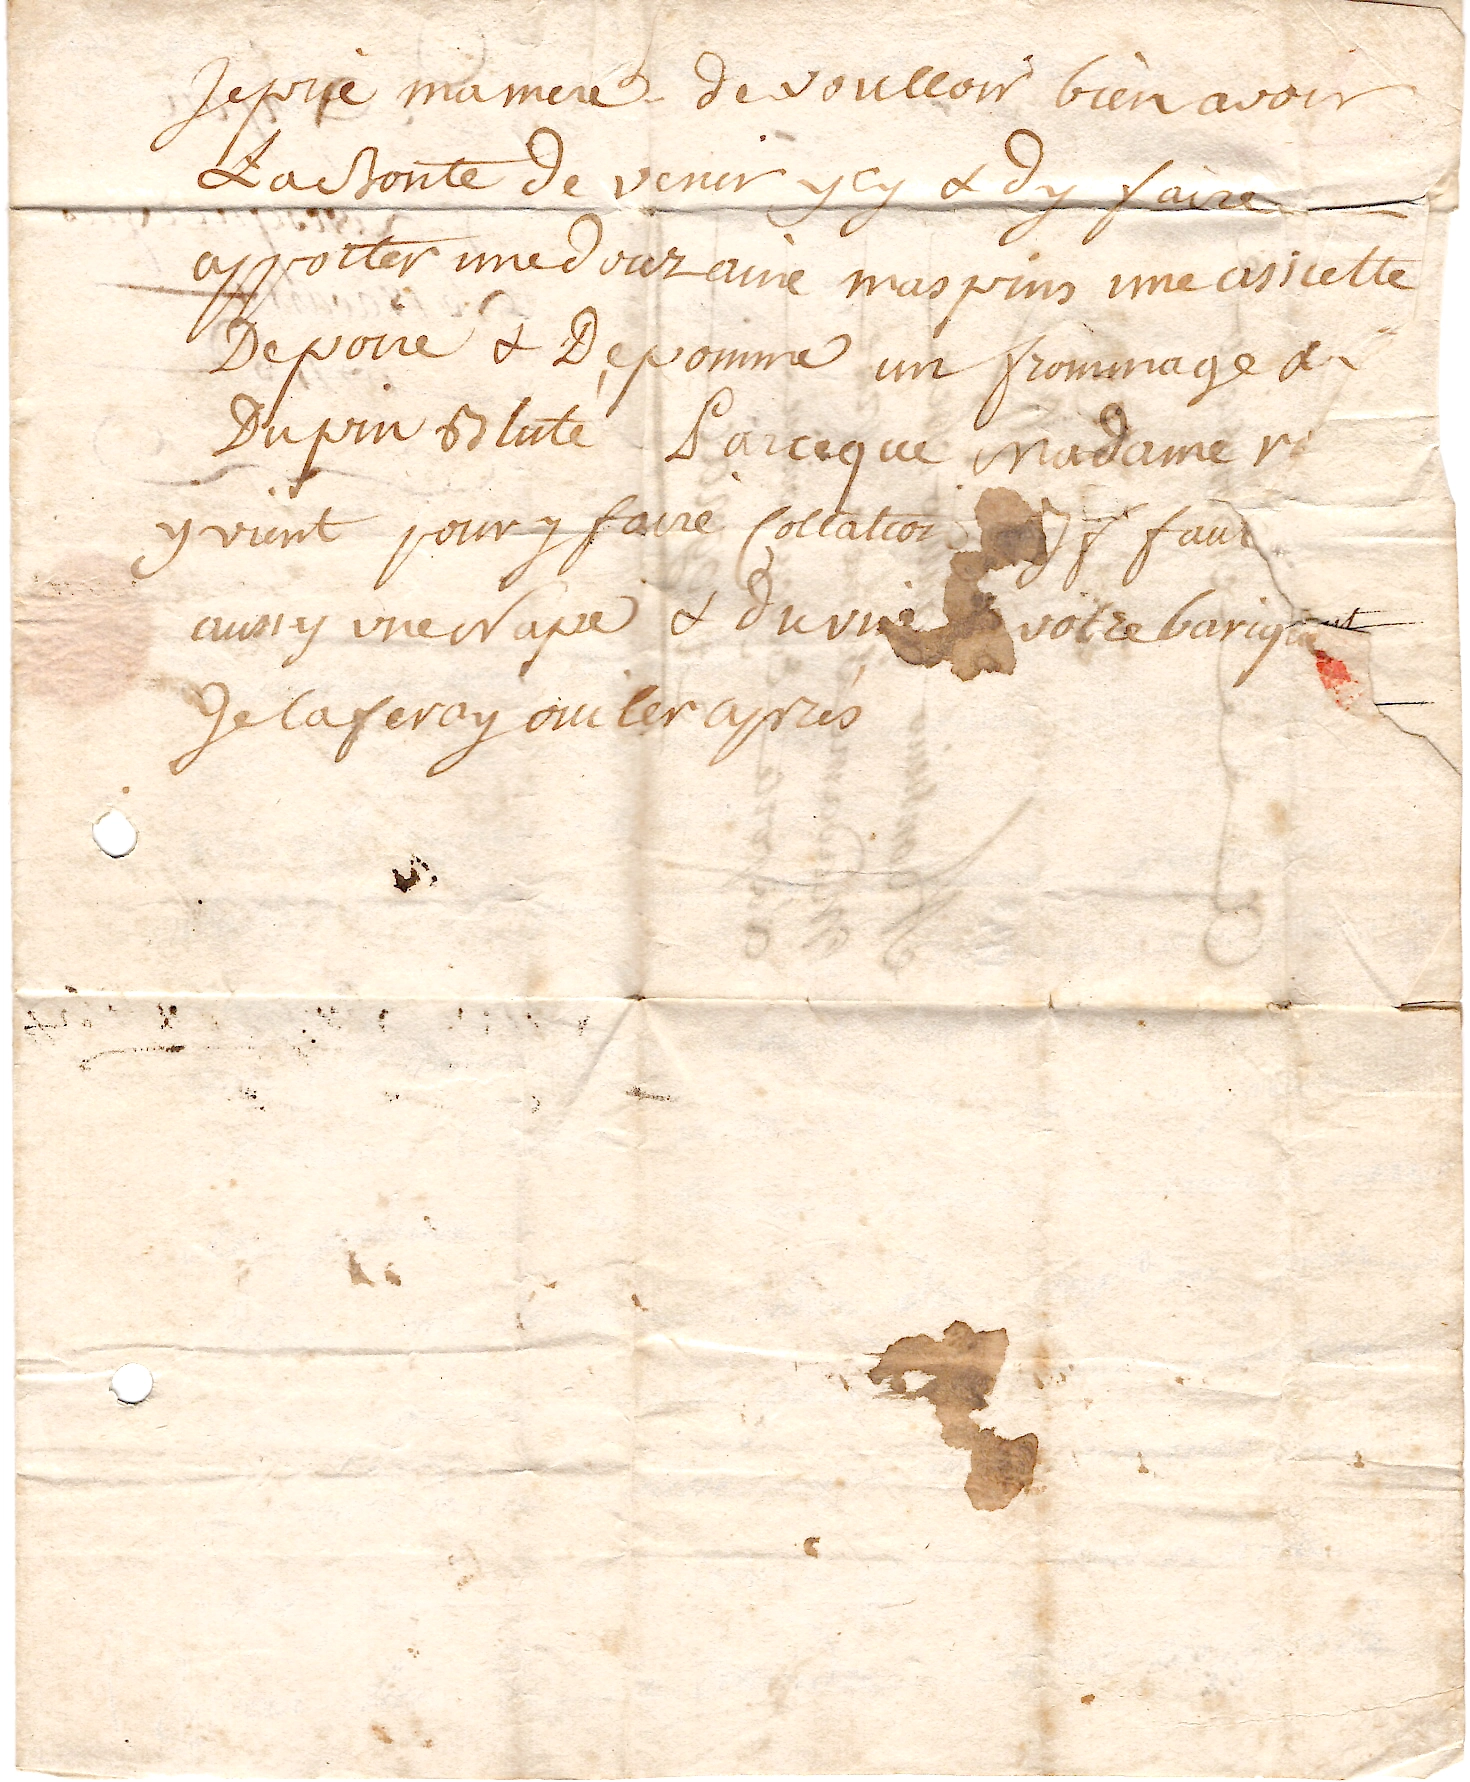 Je prie ma mere de voulloir bien avoir
La Bonté de venir ycy & dy faire
apporter une douzaine maspins une assiette
De poire & De pomme un frommage &
Du pin Bluté Parceque Madame
y vient pour y faire Collation Il faut
aussy une Nape & du vin votre barique
Je la feray ouiler aprés